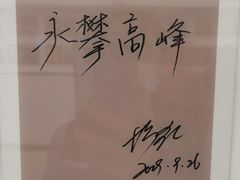 永攀高峰
2009.9.26